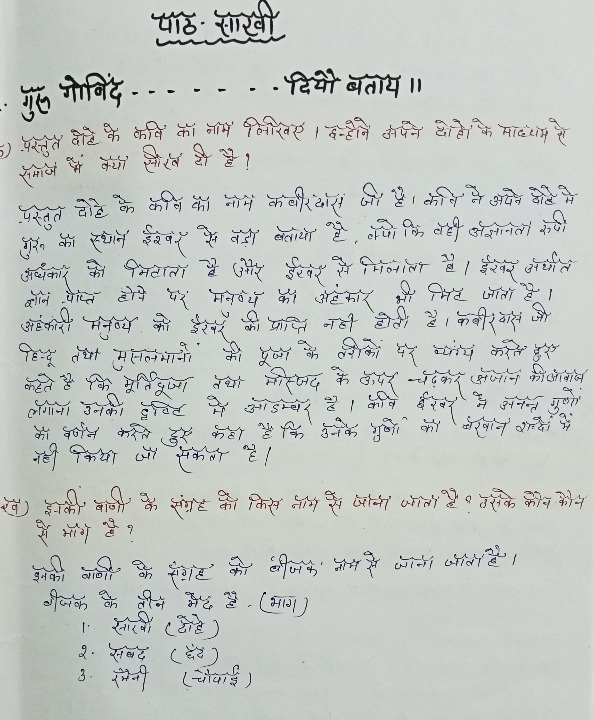 पाठ - साखी
गुरु गोविंद - - - - - - - दियौ बताय॥
क) प्रस्तुत दोहे के कवि का नाम लिखिए। इन्होंने अपने दोहों के माध्यम से
समाज में क्या सीख दी है?
प्रस्तुत दोहे के कवि का नाम कबीरदास जी है। कवि ने अपने दोहे में
गुरु का स्थान ईश्वर से बड़ा बताया है, क्यों कि वही अज्ञानता रूपी
अंधकार को मिटाता है और ईश्वर से मिलाता है। ईश्वर अर्थात
ज्ञान प्राप्त होने पर मनुष्य का अहंकार भी मिट जाता है।
अहंकारी मनुष्य को ईश्वर की प्राप्ति नहीं होती है। कबीरदास जी
हिन्दू तथा मुसलमानों की पूजा के तरीकों पर व्यंग्य करते हुए
कहते है कि मूर्तिपूजा तथा मस्जिद के ऊपर चढ़कर अजान की आवाज
लगाना उनकी दृष्टि में आडम्बर है। कवि ईश्वर के अनन्त गुणों
का वर्णन करते हुए कहा है कि उनके गुणों का बखान शब्दों में
नहीं किया जा सकता है।
ख) इनकी वाणी के संग्रह को किस नाम से जाना जाता है? उसके कौन कौन
से भाग है?
इनकी वाणी के संग्रह को बीजक नाम से जाना जाता है।
बीजक के तीन भेद है - (भाग)
1. साखी (दोहे)
2. सबद (छंद)
3. रमैनी (चौपाई)